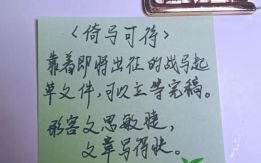 〈倚马可待〉
靠着即将出征的战马起
草文件，可以立等完稿。
形容文思敏捷，
文章写得快。